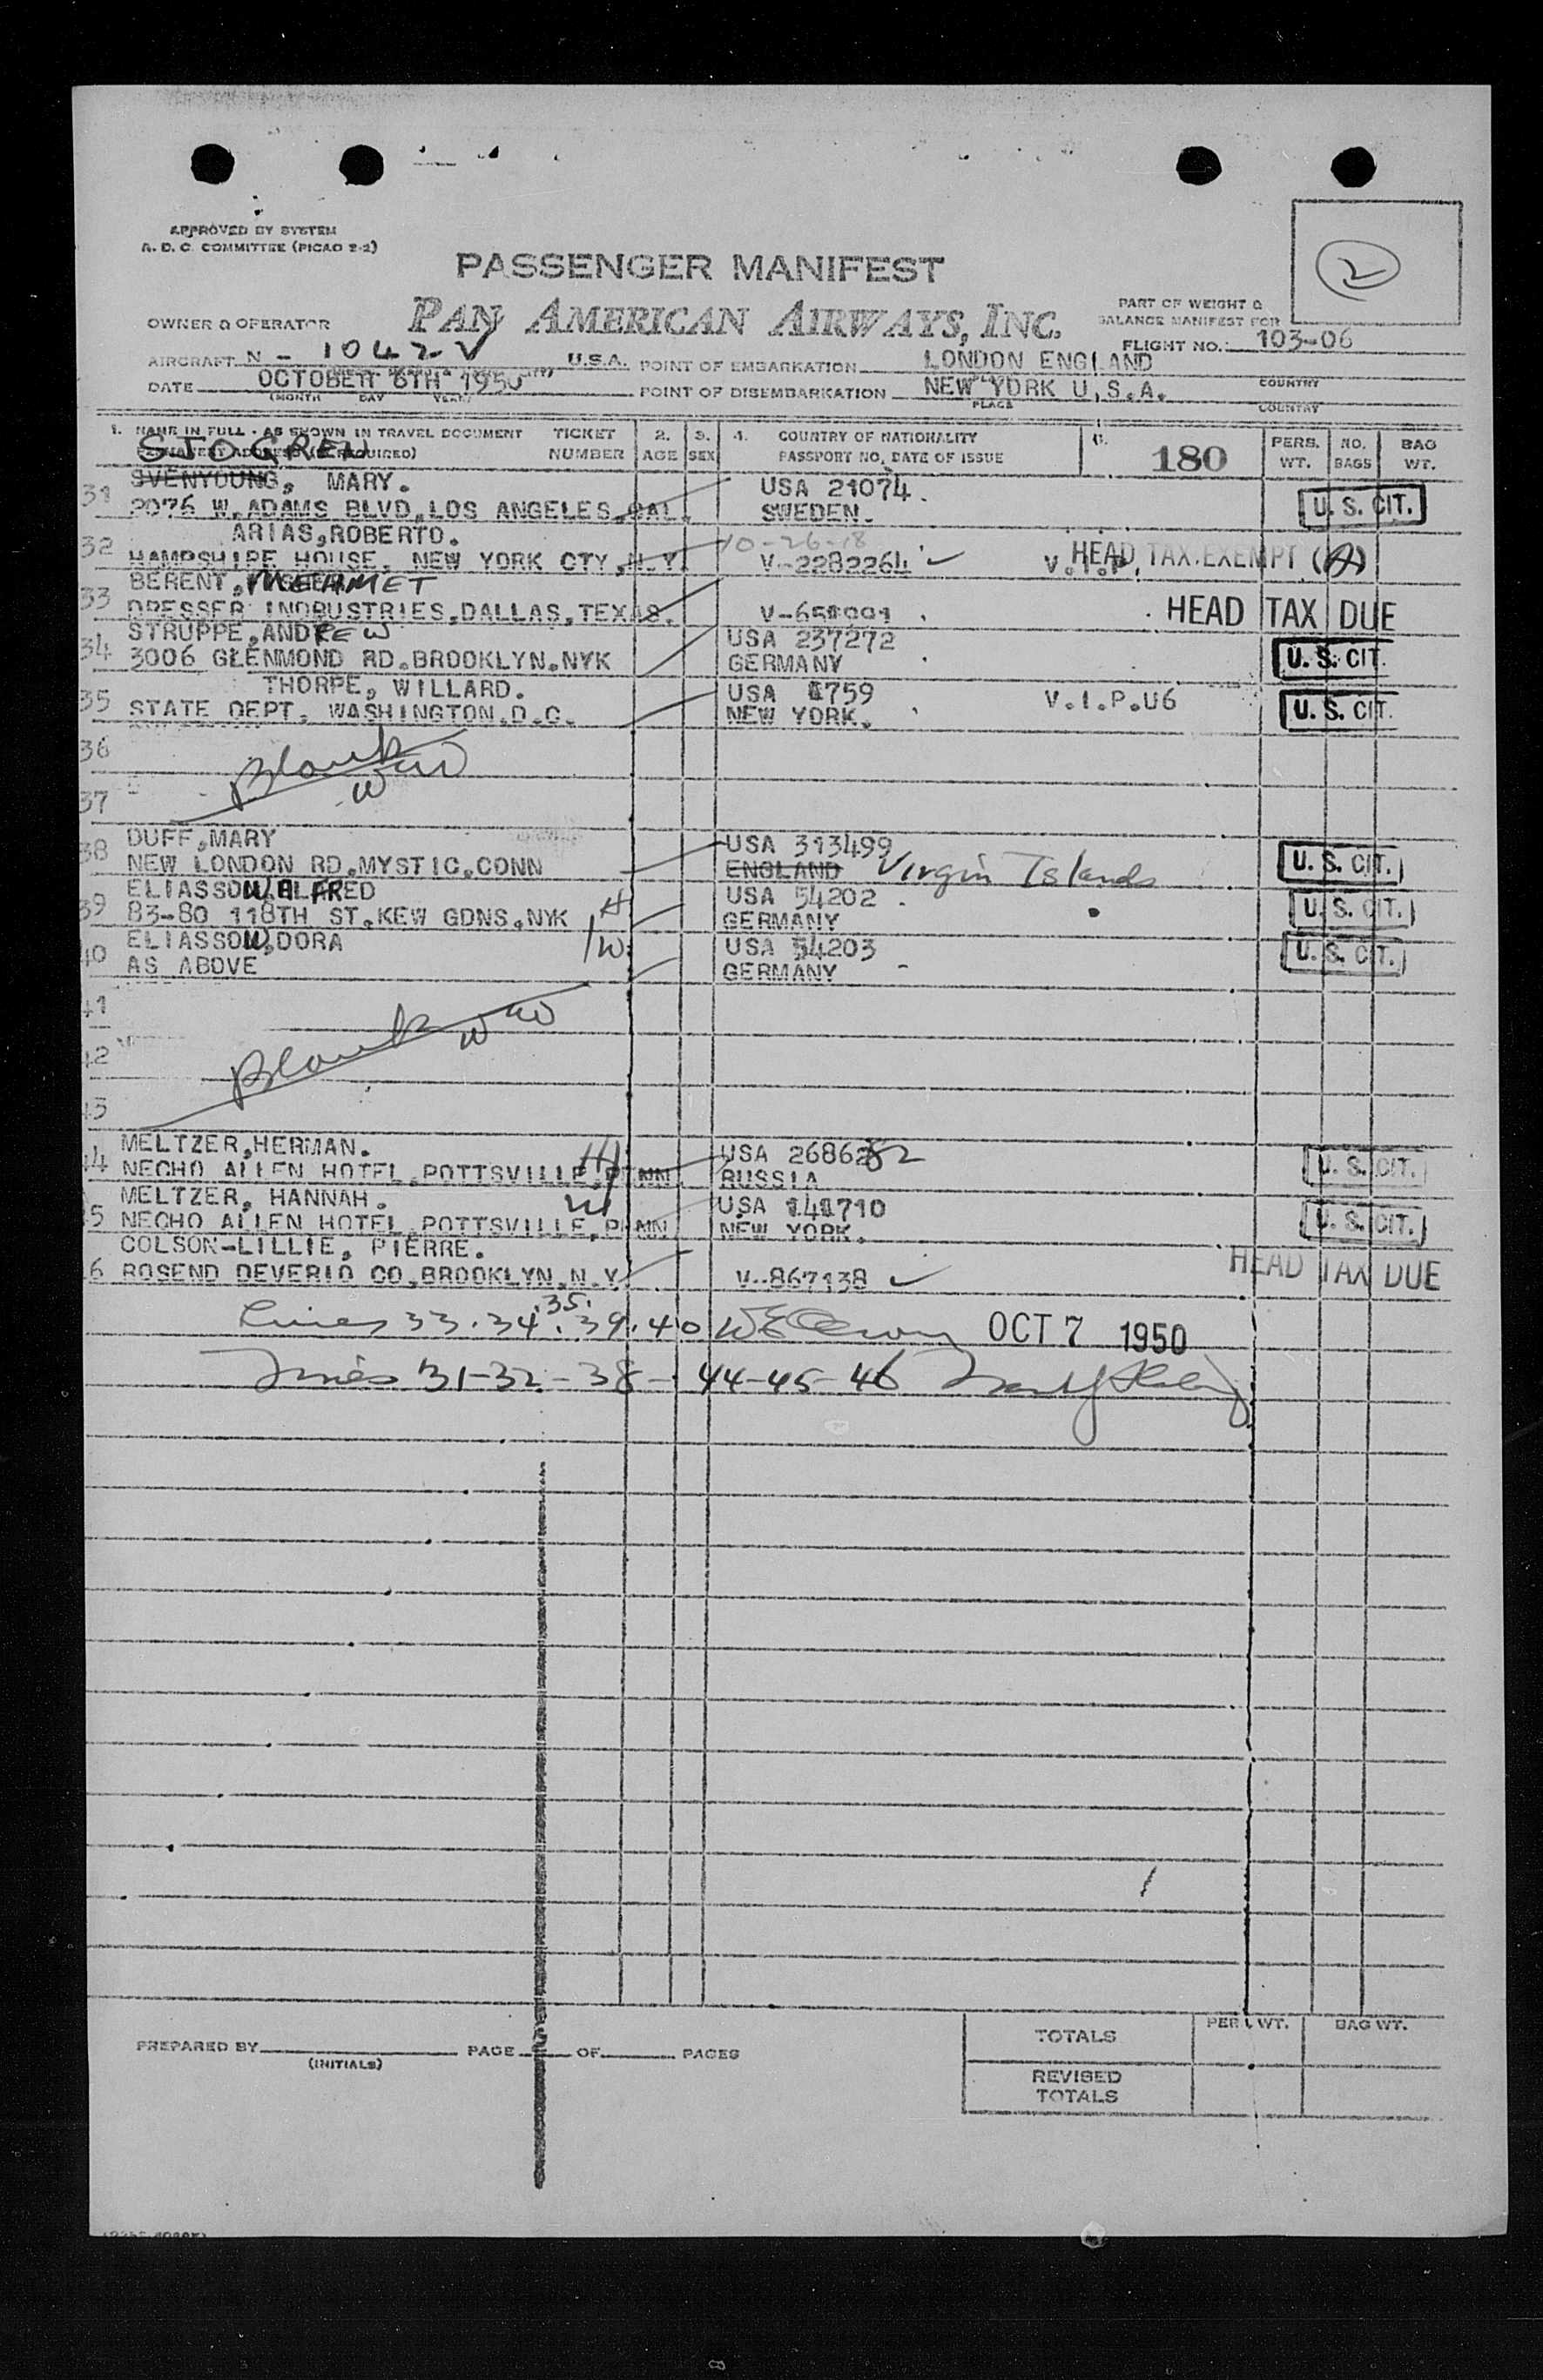 APPROVED BY SYSTEM
A. D. C. COMMITTEE (PICAO 2-2)
2
PASSENGER MANIFEST
PAN AMERICAN AIRWAYS, INC.
PART OF WEIGHT &
BALANCE MANIFEST FOR
OWNER & OPERATOR
FLIGHT NO. 103-06
AIRCRAFT N - 1042V U.S.A. POINT OF EMBARKATION LONDON ENGLAND
DATE OCTOBER 6TH 1950 POINT OF DISEMBARKATION NEW YORK U.S.A. COUNTRY
(MONTH DAY YEAR) PLACE COUNTRY
1. NAME IN FULL - AS SHOWN IN TRAVEL DOCUMENT TICKET NUMBER 2. AGE 3. SEX 4. COUNTRY OF NATIONALITY PASSPORT NO. DATE OF ISSUE 180 PERS. WT. NO. BAGS BAG WT.
SJOGREN
31 SVENYOUNG, MARY. USA 21074. U. S. CIT.
2076 W. ADAMS BLVD, LOS ANGELES, CAL. SWEDEN.
ARIAS, ROBERTO. 10-26-18
32 HAMPSHIRE HOUSE, NEW YORK CTY, N.Y. V-2282264 V.I.P. HEAD TAX EXEMPT (A)
BERENT, MEHMET
33 DRESSER INDRUSTRIES, DALLAS, TEXAS. HEAD TAX DUE
STRUPPE, ANDREW USA 237272
34 3006 GLENMOND RD. BROOKLYN. NYK GERMANY U. S. CIT.
THORPE, WILLARD. USA 1759 V.I.P.U6
35 STATE DEPT, WASHINGTON, D.C. NEW YORK. U. S. CIT.
36
Blank
37
DUFF, MARY USA 313499
38 NEW LONDON RD, MYSTIC, CONN ENGLAND Virgin Islands U. S. CIT.
ELIASSOW, ALFRED USA 54202
39 83-80 118TH ST, KEW GDNS, NYK H GERMANY U. S. CIT.
ELIASSOW, DORA W USA 54203
40 AS ABOVE GERMANY U. S. CIT.
41
42 Blank
43
MELTZER, HERMAN. H USA 268682
44 NECHO ALLEN HOTEL, POTTSVILLE, PENN. RUSSIA U. S. CIT.
MELTZER, HANNAH. W USA 141710
45 NECHO ALLEN HOTEL, POTTSVILLE, PENN NEW YORK. U. S. CIT.
COLSON-LILLIE, PIERRE.
46 ROSEND DEVERIO CO, BROOKLYN, N.Y. V-867138 HEAD TAX DUE
Lines 33.34.35.39.40 OCT 7 1950
Lines 31-32-38-44-45-46
PREPARED BY (INITIALS) PAGE OF PAGES
TOTALS PERS. WT. BAG WT.
REVISED TOTALS